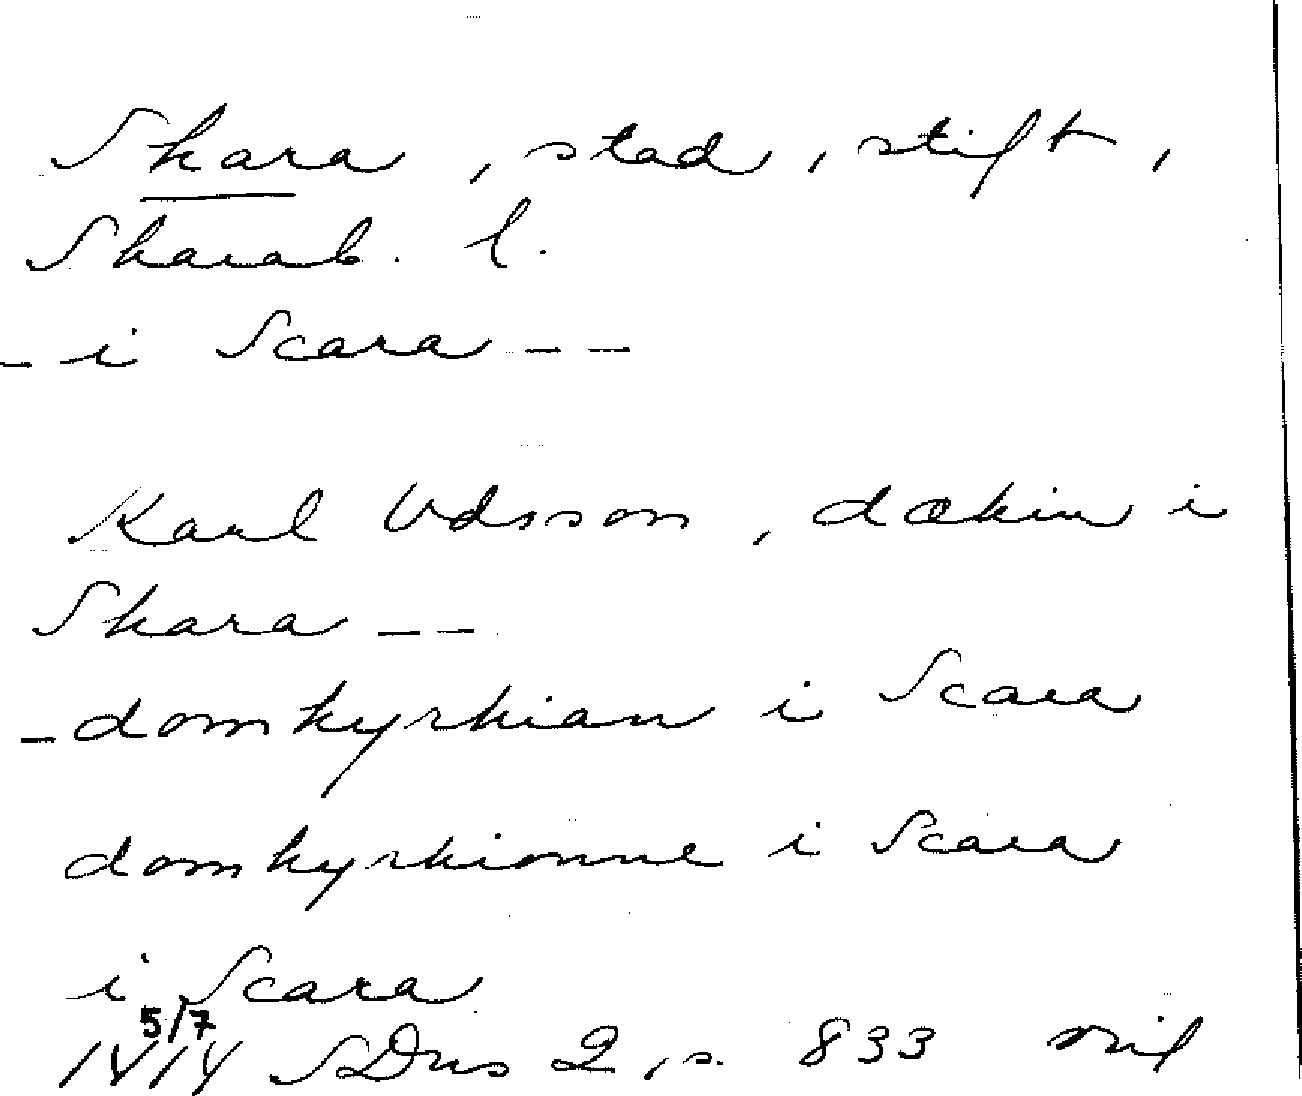 Skara, stad, stift,
Skarab. l.
- - i Scara - -
Karl Udsson, dækin i
Skara - -
- domkyrkian i Scara
domkyrkionne i Scara
i Scara
5/7
1414 SDns 2, s. 833